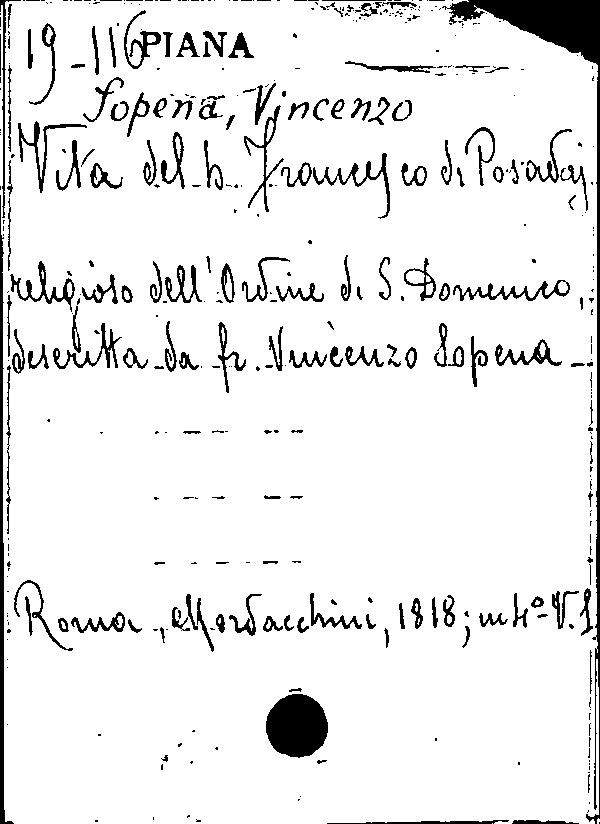 19-116 PIANA
Sopena, Vincenzo
Vita del b. Francesco di Posadas
religioso dell'Ordine di S. Domenico,
descritta da fr. Vincenzo Sopena -
Roma, Mordacchini, 1818; in 4º V. 1